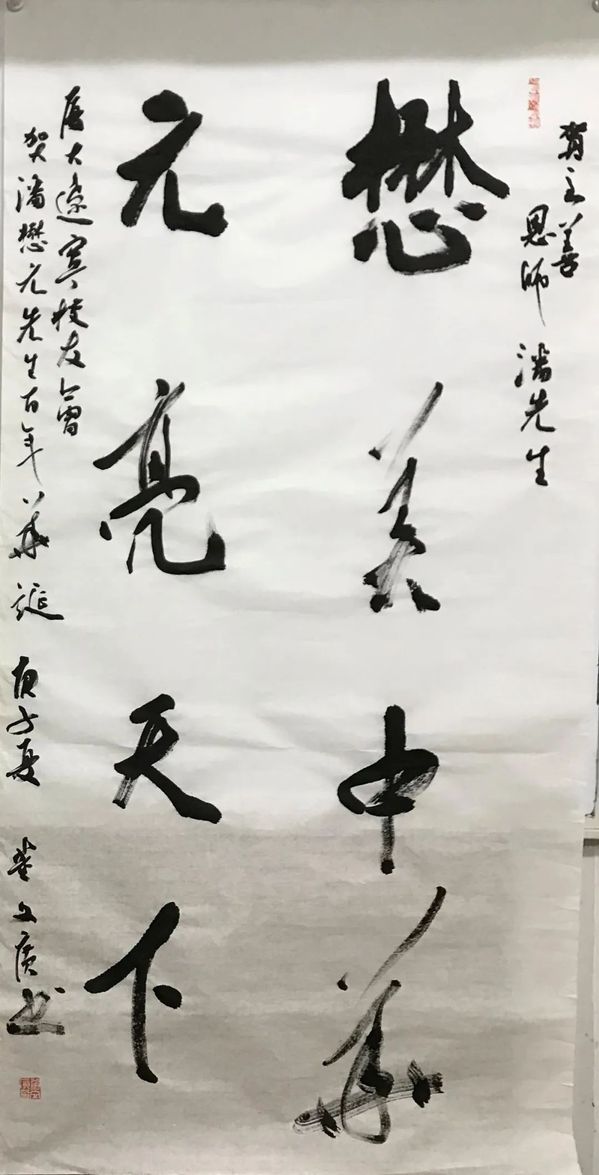 恩师 潘先生
懋美中華
元亮天下
厦大遼寧校友會
贺潘懋元先生百年華誕 庚子夏 董文廣书